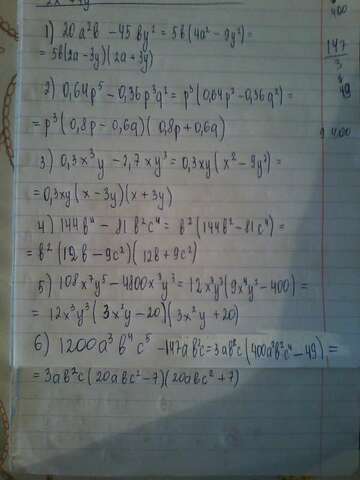 1) 20a²b - 45by² = 5b(4a² - 9y²) =
= 5b(2a - 3y)(2a + 3y)
2) 0,64p⁵ - 0,36p³q² = p³(0,64p² - 0,36q²) =
= p³(0,8p - 0,6q)(0,8p + 0,6q)
3) 0,3x³y - 2,7xy³ = 0,3xy(x² - 9y²) =
= 0,3xy(x - 3y)(x + 3y)
4) 144b⁴ - 81b²c⁴ = b²(144b² - 81c⁴) =
= b²(12b - 9c²)(12b + 9c²)
5) 108x⁷y⁵ - 4800x³y³ = 12x³y³(9x⁴y² - 400) =
= 12x³y³(3x²y - 20)(3x²y + 20)
6) 1200a³b⁴c⁵ - 147ab²c = 3ab²c(400a²b²c⁴ - 49) =
= 3ab²c(20abc² - 7)(20abc² + 7)
400
147
3
49
400